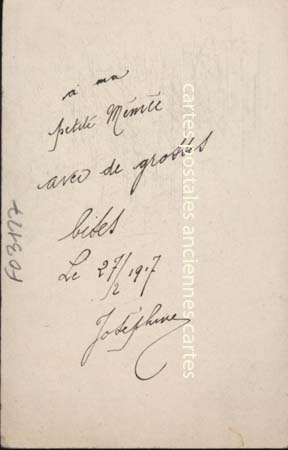 à ma
petite Mémée
avec de grosses
bises
Le 27/2 1917
Joséphine
cartes postales anciennes cartes